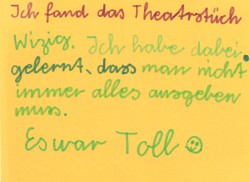 Ich fand das Theatrstüch
Wizig. Ich habe dabei
gelernt, dass man nicht
immer alles ausgeben
muss.
Es war Toll